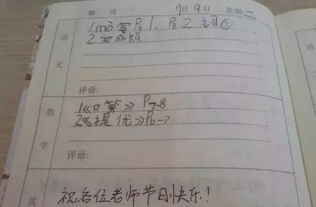 周 9月9日 星期二
语文
1mò写P1、P2 词②
2写
评语:
数学
1《口算》P7-8
2《提优》P6-7
评语:
其
祝各位老师节日快乐!